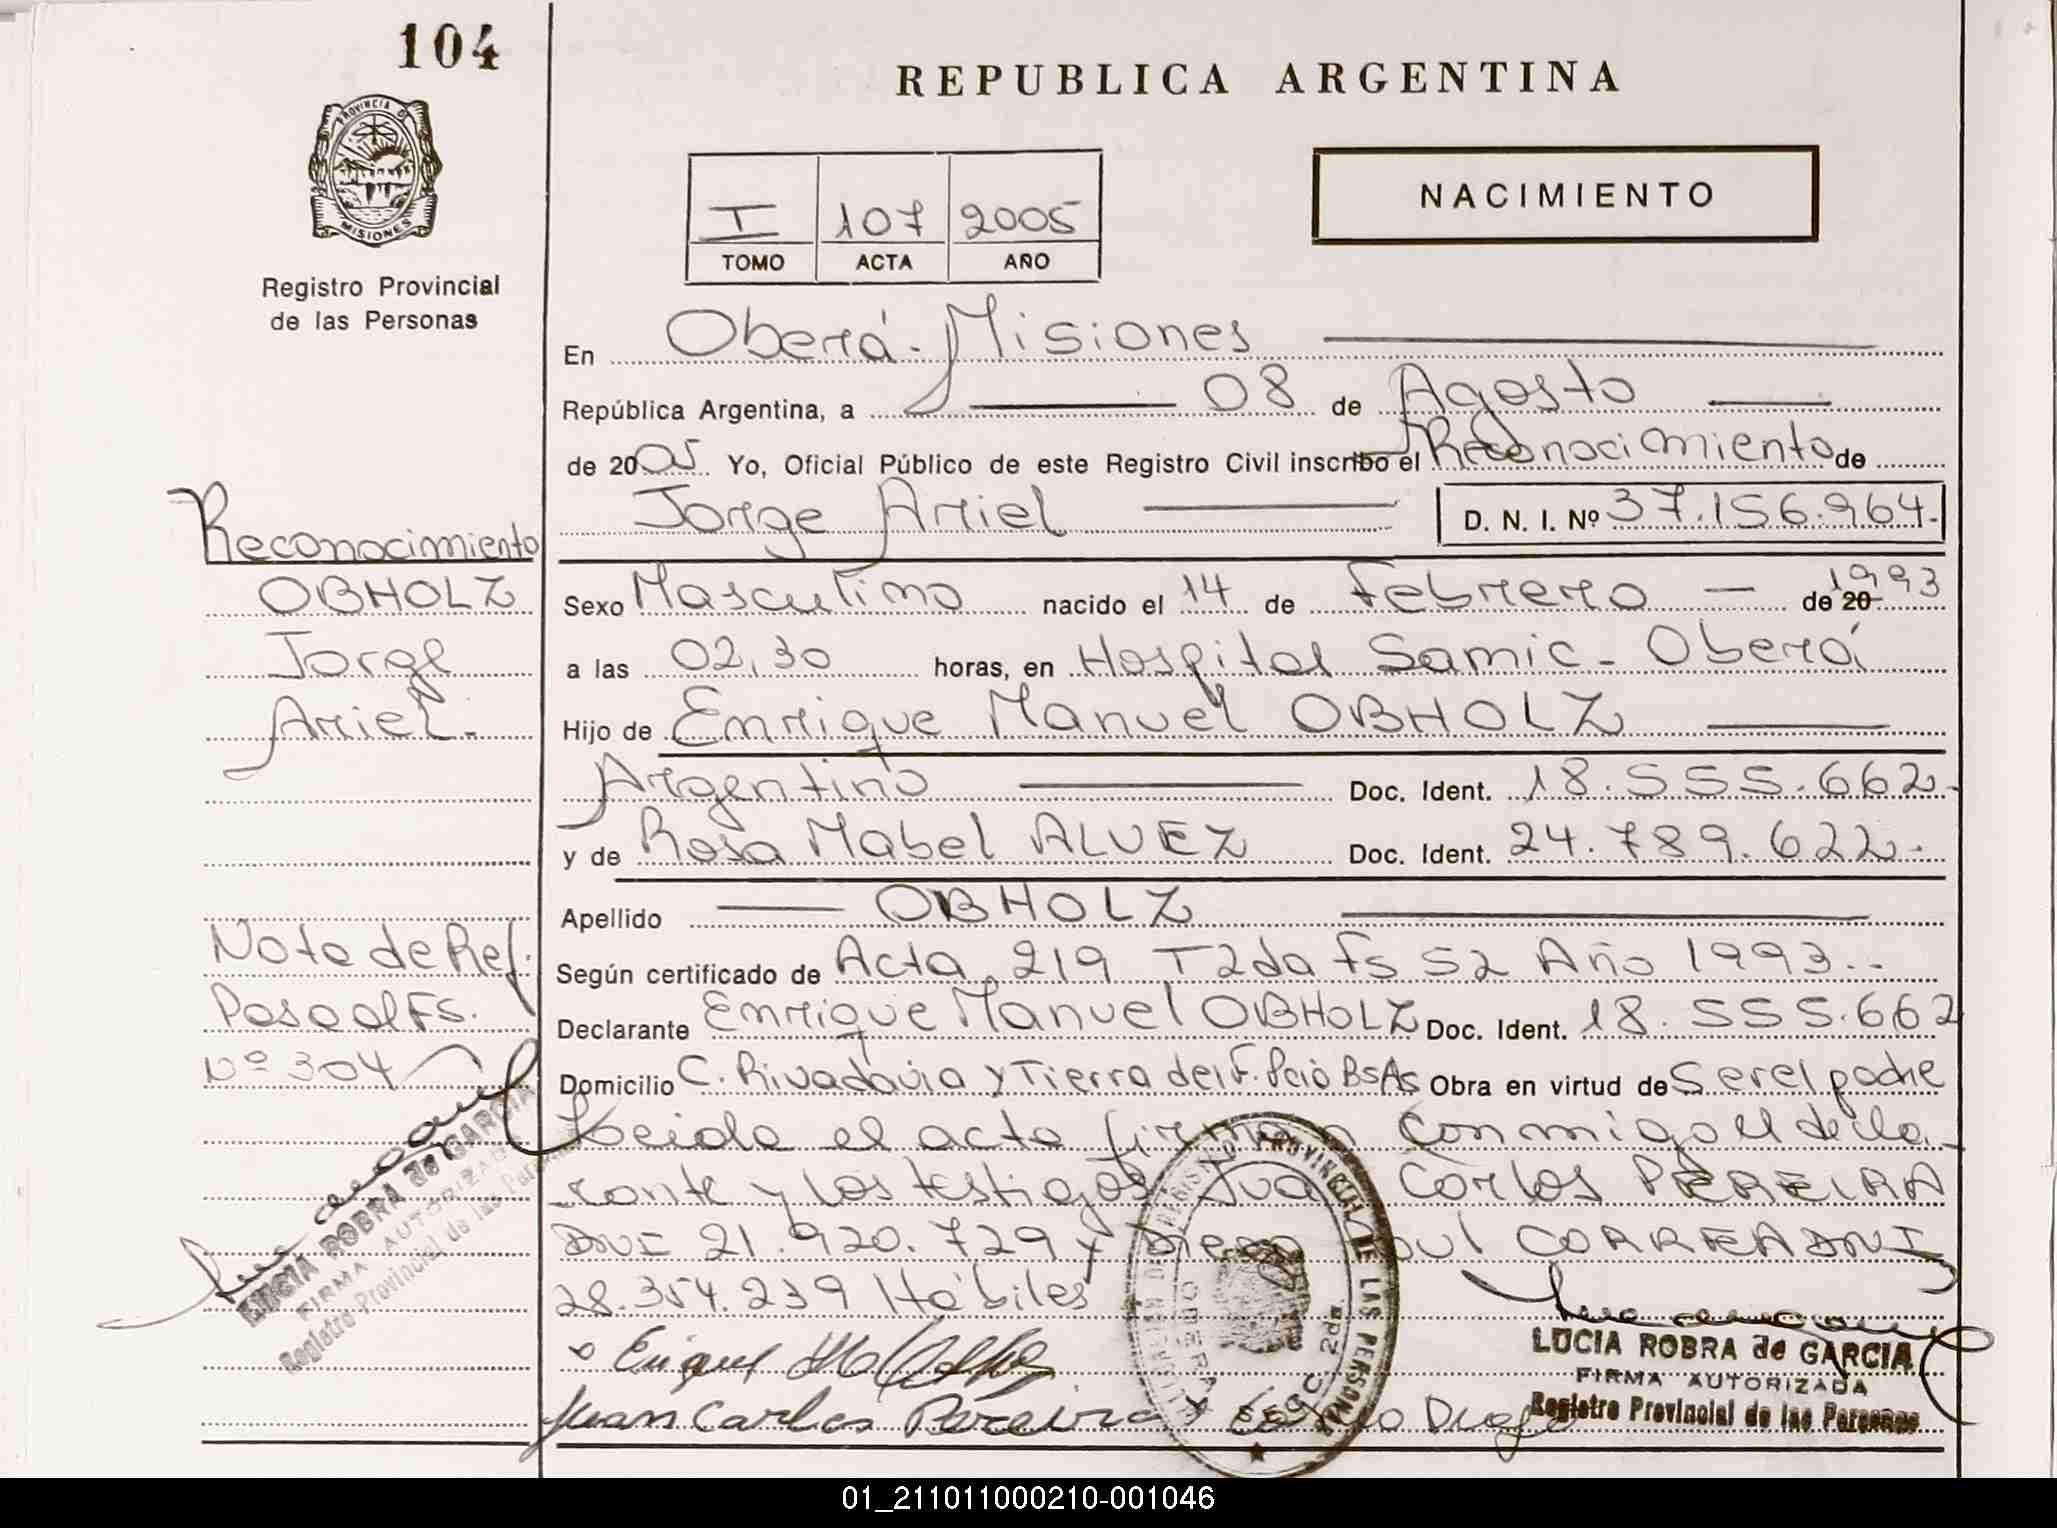 104
PROVINCIA DE
MISIONES
Registro Provincial
de las Personas
REPUBLICA ARGENTINA
NACIMIENTO
I 107 2005
TOMO ACTA AÑO
En Oberá - Misiones
República Argentina, a 08 de Agosto
de 2005 Yo, Oficial Público de este Registro Civil inscribo el Reconocimiento de
Jorge Ariel D. N. I. Nº 37.156.964.-
Sexo Masculino nacido el 14 de Febrero de 20 1993
a las 02,30 horas, en Hospital Samic - Oberá
Hijo de Enrique Manuel OBHOLZ
Argentino Doc. Ident. 18.555.662.-
y de Rosa Mabel ALVEZ Doc. Ident. 24.789.622.-
Apellido OBHOLZ
Según certificado de Acta 219 T 2da Fs 52 Año 1993.-
Declarante Enrique Manuel OBHOLZ Doc. Ident. 18.555.662
Domicilio C. Rivadavia y Tierra del F. Pcio BsAs Obra en virtud de Ser el padre
Leida el acta firman conmigo el decla-
rante y los testigos Juan Carlos PEREIRA
DNI 21.920.729 y Diego CORREA DNI
28.354.239 Hábiles
Juan Carlos Pereira Diego
LUCIA ROBRA de GARCIA
FIRMA AUTORIZADA
Registro Provincial de las Personas
Reconocimiento
OBHOLZ
Jorge
Ariel.-
Nota de Ref.
Pasa al Fs.
Nº 304
LUCIA ROBRA de GARCIA
FIRMA AUTORIZADA
Registro Provincial de las Personas
REGISTRO PROVINCIAL DE LAS PERSONAS
OBERA
SECC 2da.
01_211011000210-001046